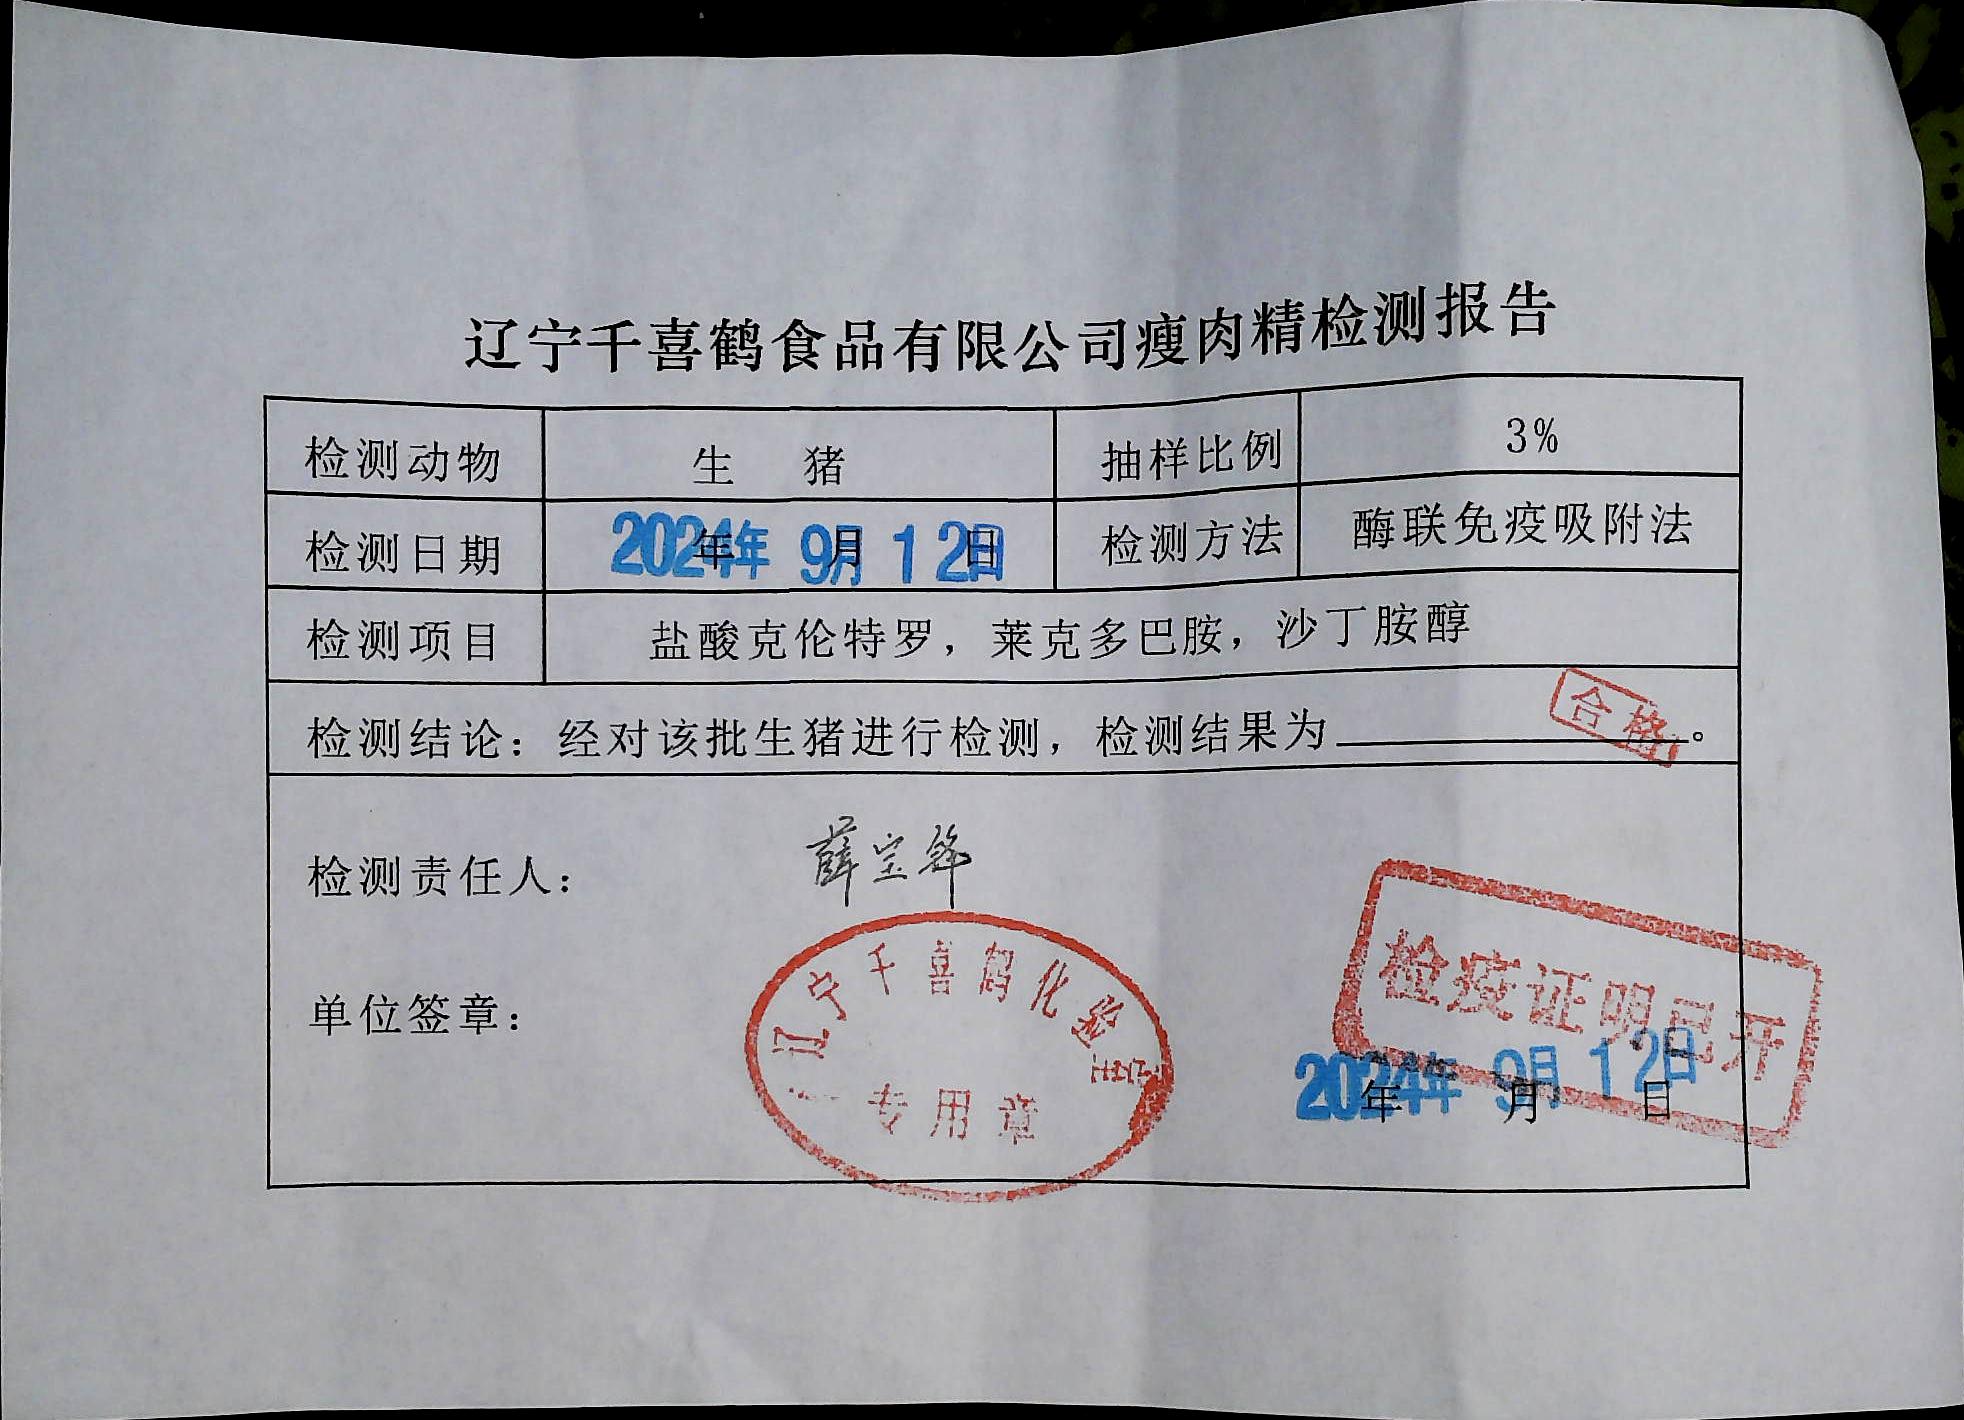 辽宁千喜鹤食品有限公司瘦肉精检测报告
检测动物 生 猪 抽样比例 3%
检测日期 2024年 9月 12日 检测方法 酶联免疫吸附法
检测项目 盐酸克伦特罗，莱克多巴胺，沙丁胺醇
检测结论：经对该批生猪进行检测，检测结果为 合格 。
检测责任人： 薛宝
单位签章：
辽宁千喜鹤化验
专用章
检疫证明已开
2024年 9月 12日
年 月 日